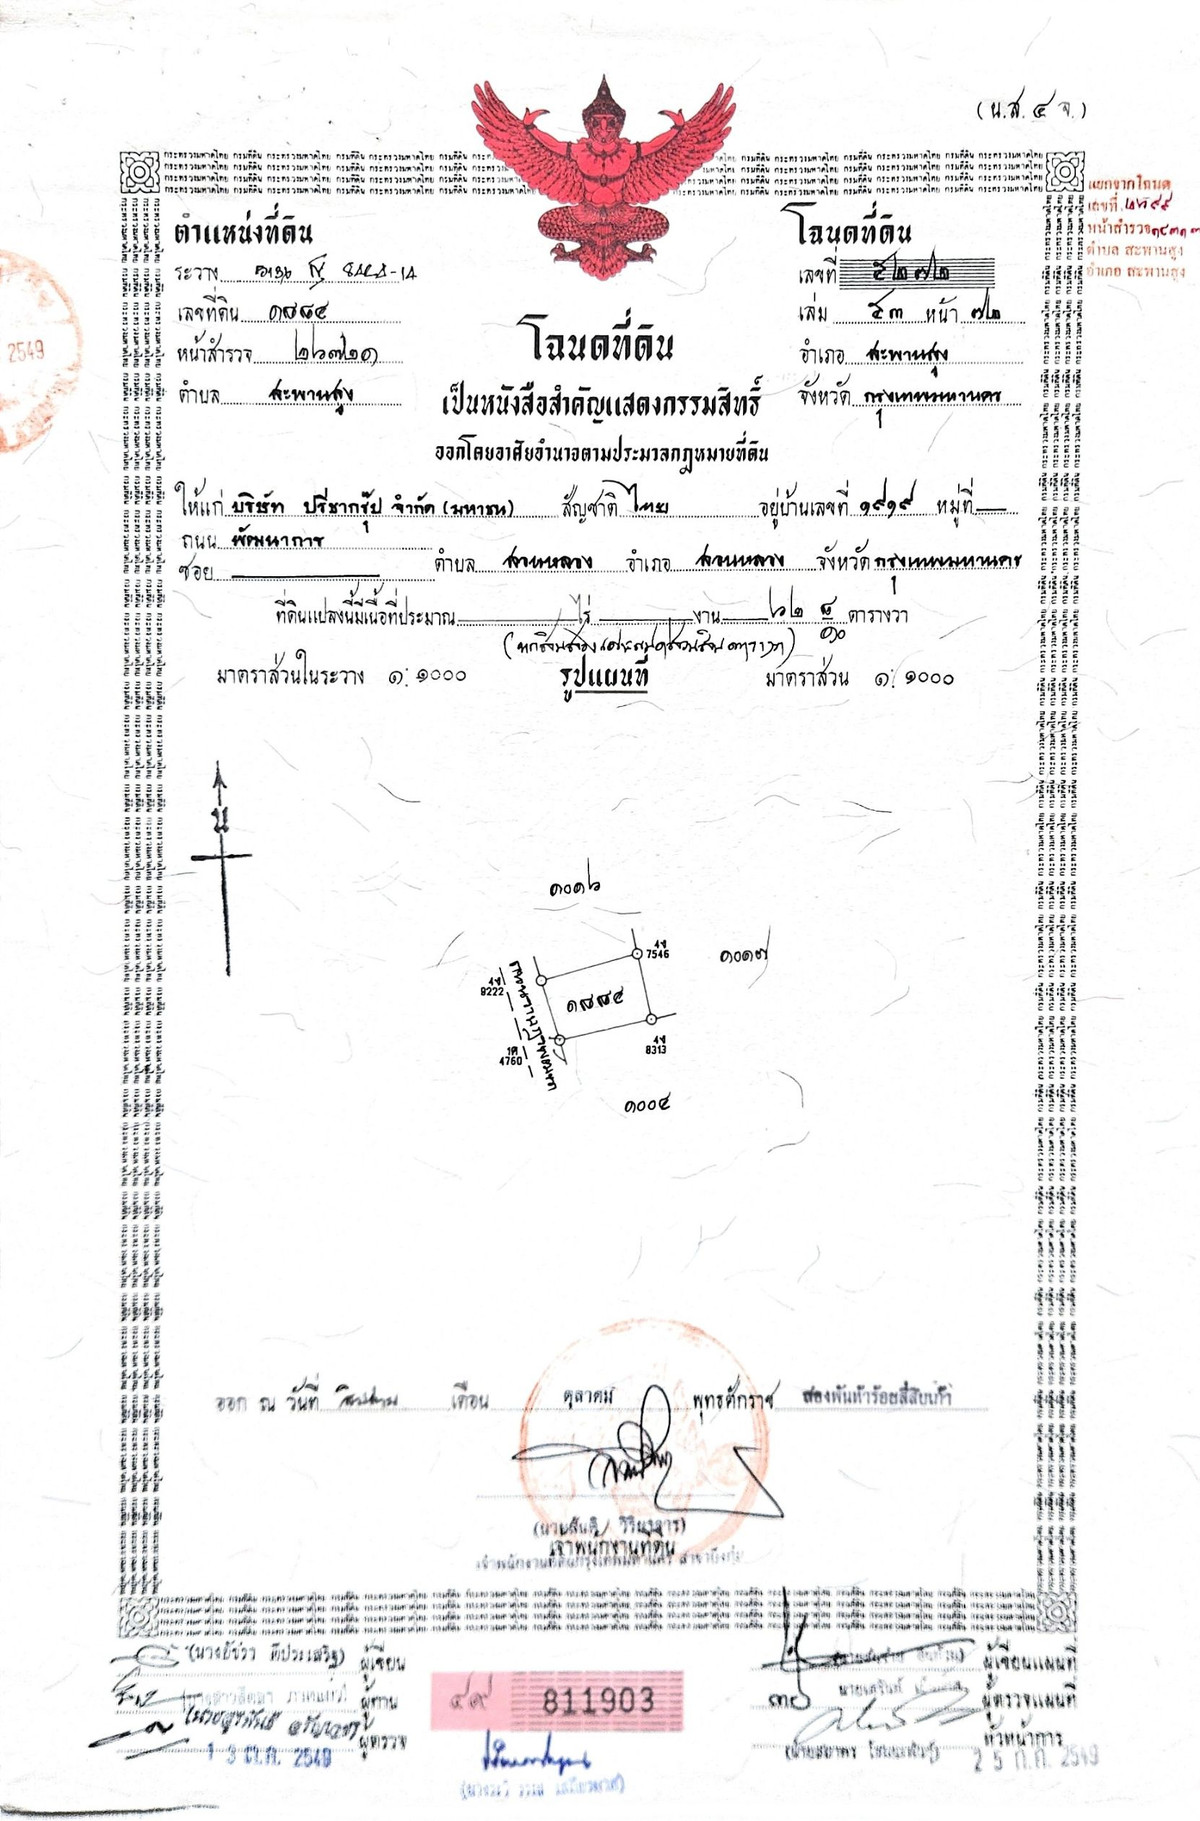 (น.ส. ๔ จ.)
แยกจากโฉนด
เลขที่
หน้าสำรวจ
ตำบล สะพานสูง
อำเภอ สะพานสูง
2549
ตำแหน่งที่ดิน
ระวาง
เลขที่ดิน ๑๘๘๔
หน้าสำรวจ ๒๖๗๒๑
ตำบล สะพานสูง
โฉนดที่ดิน
เลขที่ ๕๒๗๒
เล่ม ๕๓ หน้า ๗๒
อำเภอ สะพานสูง
จังหวัด กรุงเทพมหานคร
โฉนดที่ดิน
เป็นหนังสือสำคัญแสดงกรรมสิทธิ์
ออกโดยอาศัยอำนาจตามประมวลกฎหมายที่ดิน
ให้แก่ บริษัท ปรีชากรุ๊ป จำกัด (มหาชน) สัญชาติ ไทย อยู่บ้านเลขที่ ๑๙๑๙ หมู่ที่ —
ถนน พัฒนาการ
ซอย ตำบล สวนหลวง อำเภอ สวนหลวง จังหวัด กรุงเทพมหานคร
ที่ดินแปลงนี้มีเนื้อที่ประมาณ — ไร่ — งาน ๖๒ ๘/๑๐ ตารางวา
(หกสิบสองเศษแปดส่วนสิบตารางวา)
มาตราส่วนในระวาง ๑:๑๐๐๐ รูปแผนที่ มาตราส่วน ๑:๑๐๐๐
น
๑๐๑๖
4ข
7546
๑๐๑๗
4ข
8222
๑๘๘๔
1ค
4760
4ข
8313
๑๐๐๔
ออก ณ วันที่ เดือน ตุลาคม พุทธศักราช สองพันห้าร้อยสี่สิบเก้า
เจ้าพนักงานที่ดิน
ผู้เขียน
ผู้ทาน
ผู้ตรวจ
13 ต.ค. 2549
๔๙ 811903
ผู้เขียนแผนที่
ผู้ตรวจแผนที่
หัวหน้าการ
25 ก.ค. 2549